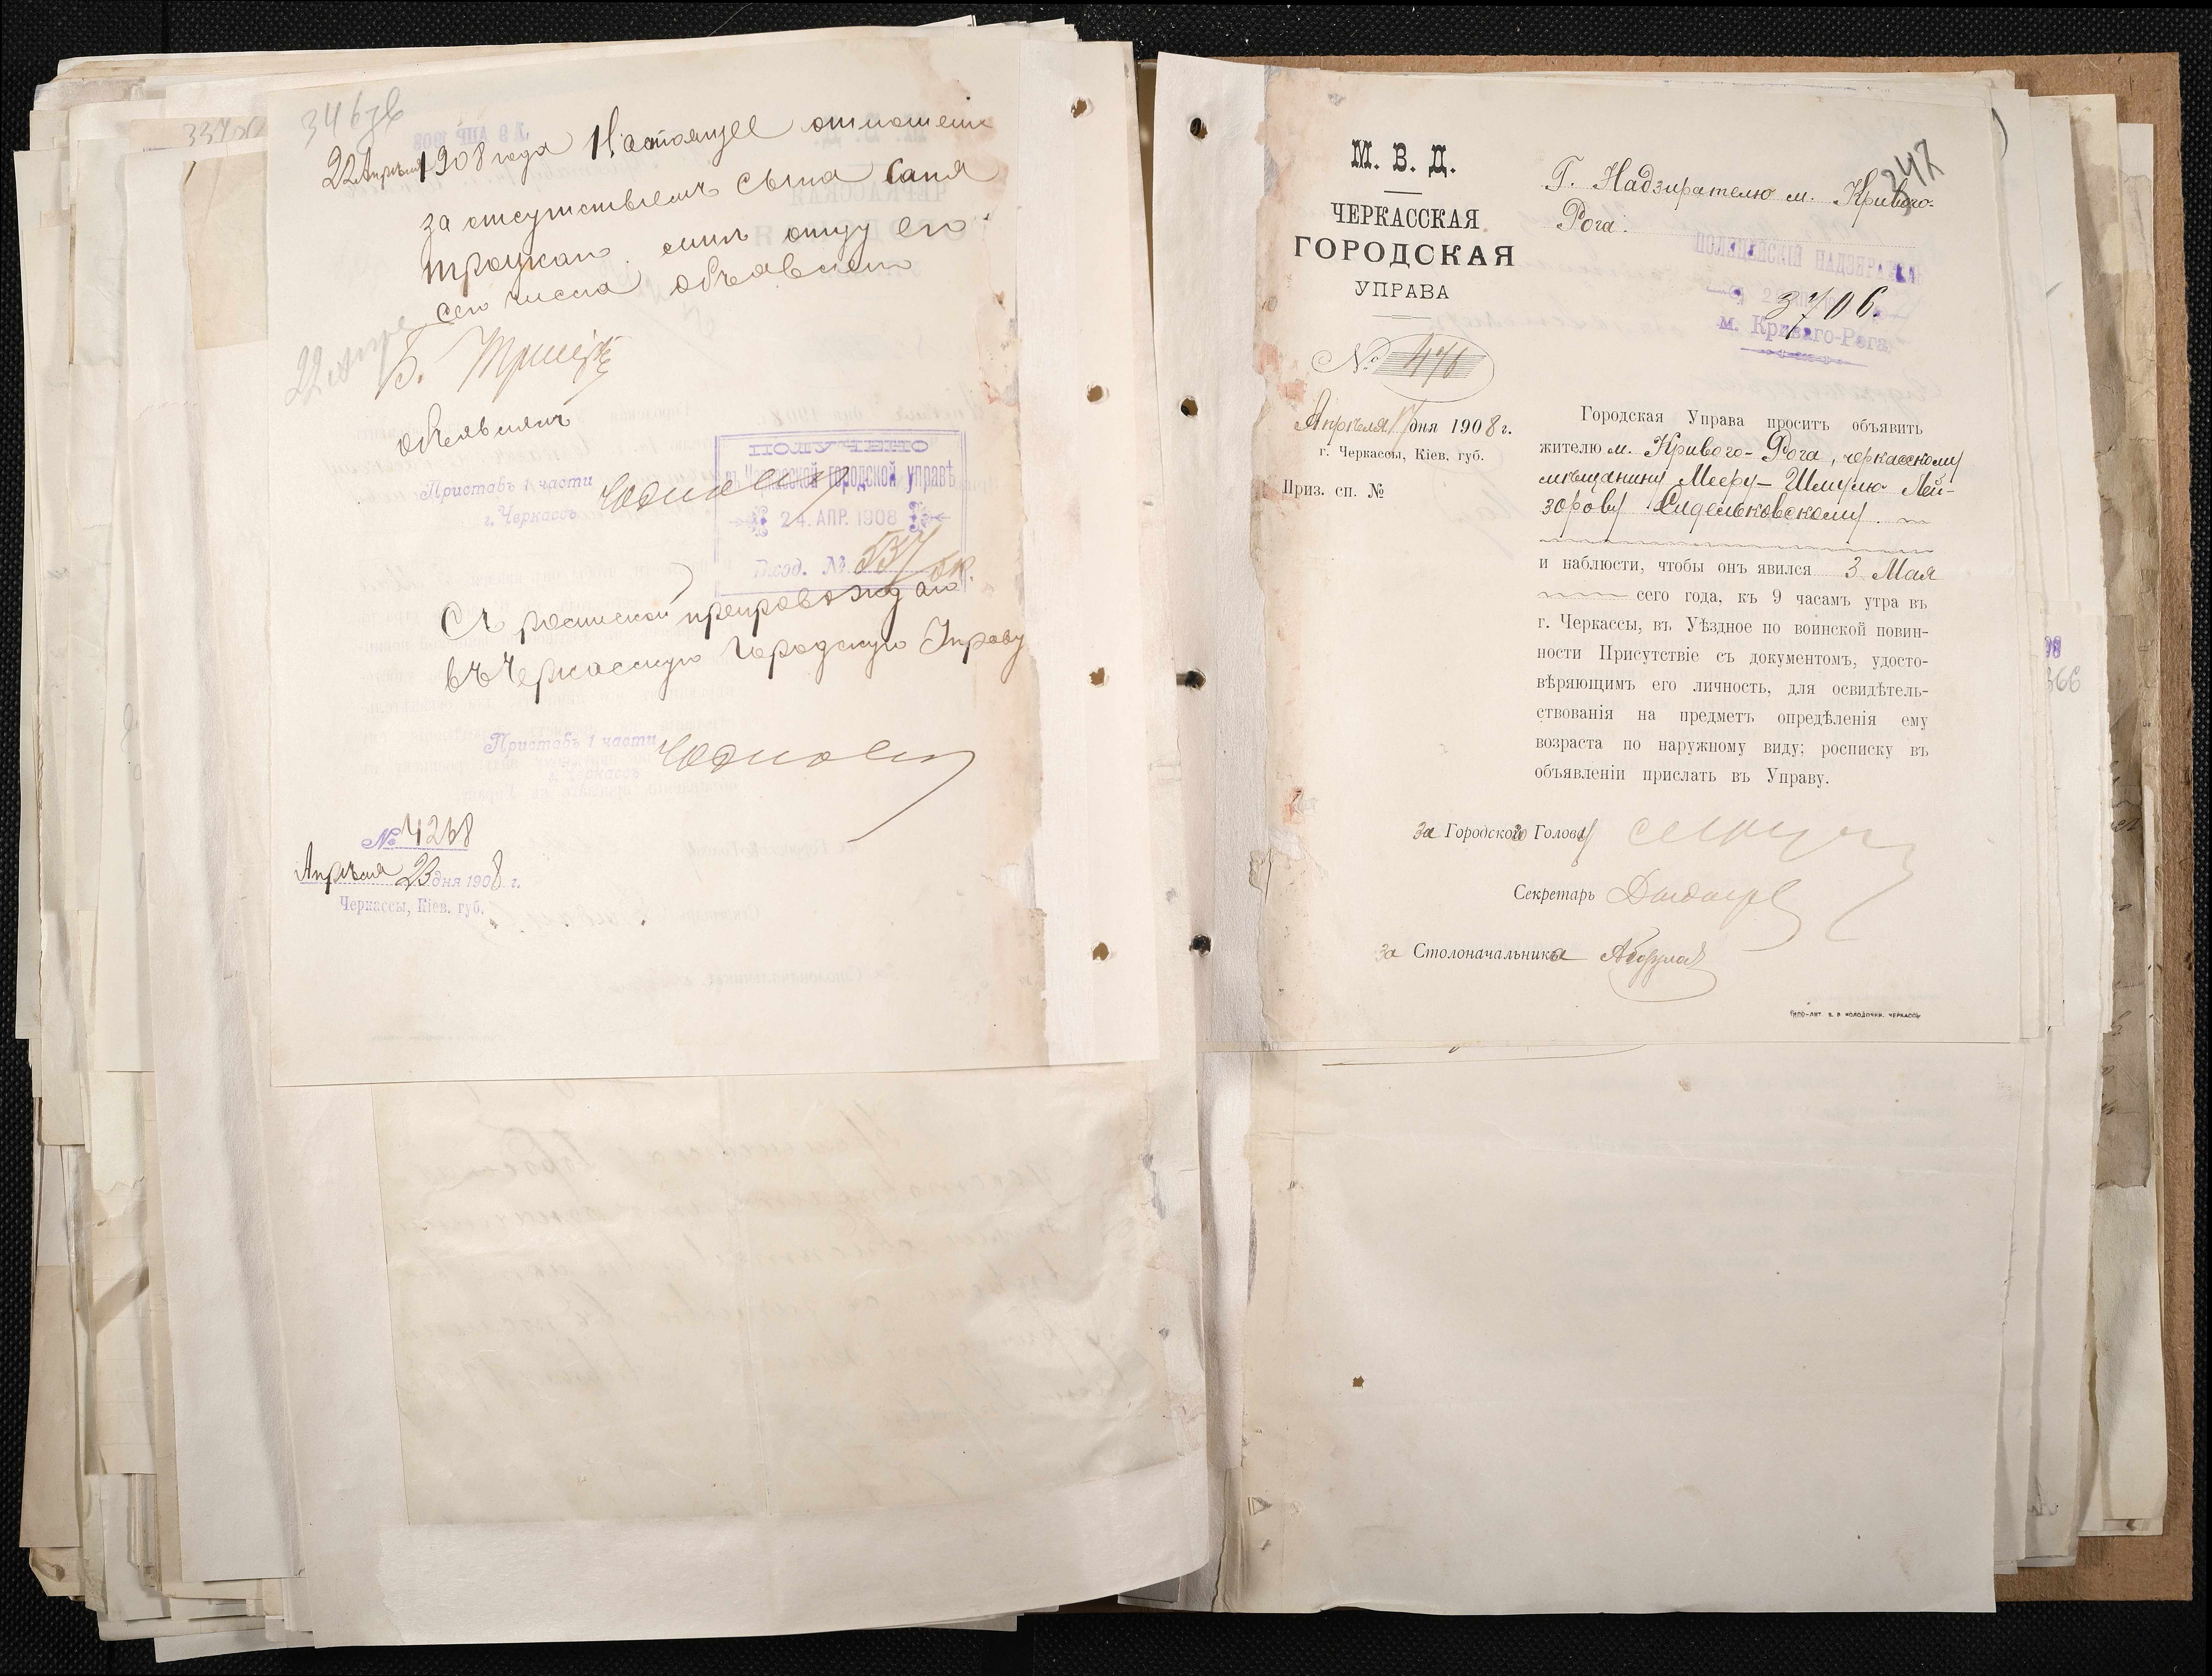 346 об
22 Апрѣля 1908 года Настоящее отношеніе
за отсутствіемъ сына Сапя
Троцкаго отцу его
сего числа объявлено
Б. Троцкій
22 Апре
объявилъ
Приставъ 1 части
г. Черкассъ
ПОЛУЧЕНО
въ Черкасской городской управѣ
24. АПР. 1908
Вход. № 537
Съ роспиской препровождаю
въ Черкасскую Городскую Управу
Приставъ 1 части
г. Черкассъ
№ 4268
Апрѣля 23 дня 1908 г.
Черкассы, Кіев. губ.
347
М. В. Д.
ЧЕРКАССКАЯ
ГОРОДСКАЯ
УПРАВА
№ 476
Апрѣля 17 дня 1908 г.
г. Черкассы, Кіев. губ.
Приз. сп. №
Г. Надзирателю м. Кривого-
Рога.
ПОЛИЦЕЙСКІЙ НАДЗИРАТЕЛЬ
3706.
м. Криваго-Рога
Городская Управа проситъ объявить
жителю м. Кривого-Рога, черкасскому
мѣщанину Мееру-Шмулю Лей-
зорову Сидельковскому.
и наблюсти, чтобы онъ явился 3 Мая
сего года, къ 9 часамъ утра въ
г. Черкассы, въ Уѣздное по воинской повин-
ности Присутствіе съ документомъ, удосто-
вѣряющимъ его личность, для освидѣтель-
ствованія на предметъ опредѣленія ему
возраста по наружному виду; росписку въ
объявленіи прислать въ Управу.
За Городского Голову
Секретарь
За Столоначальника
366